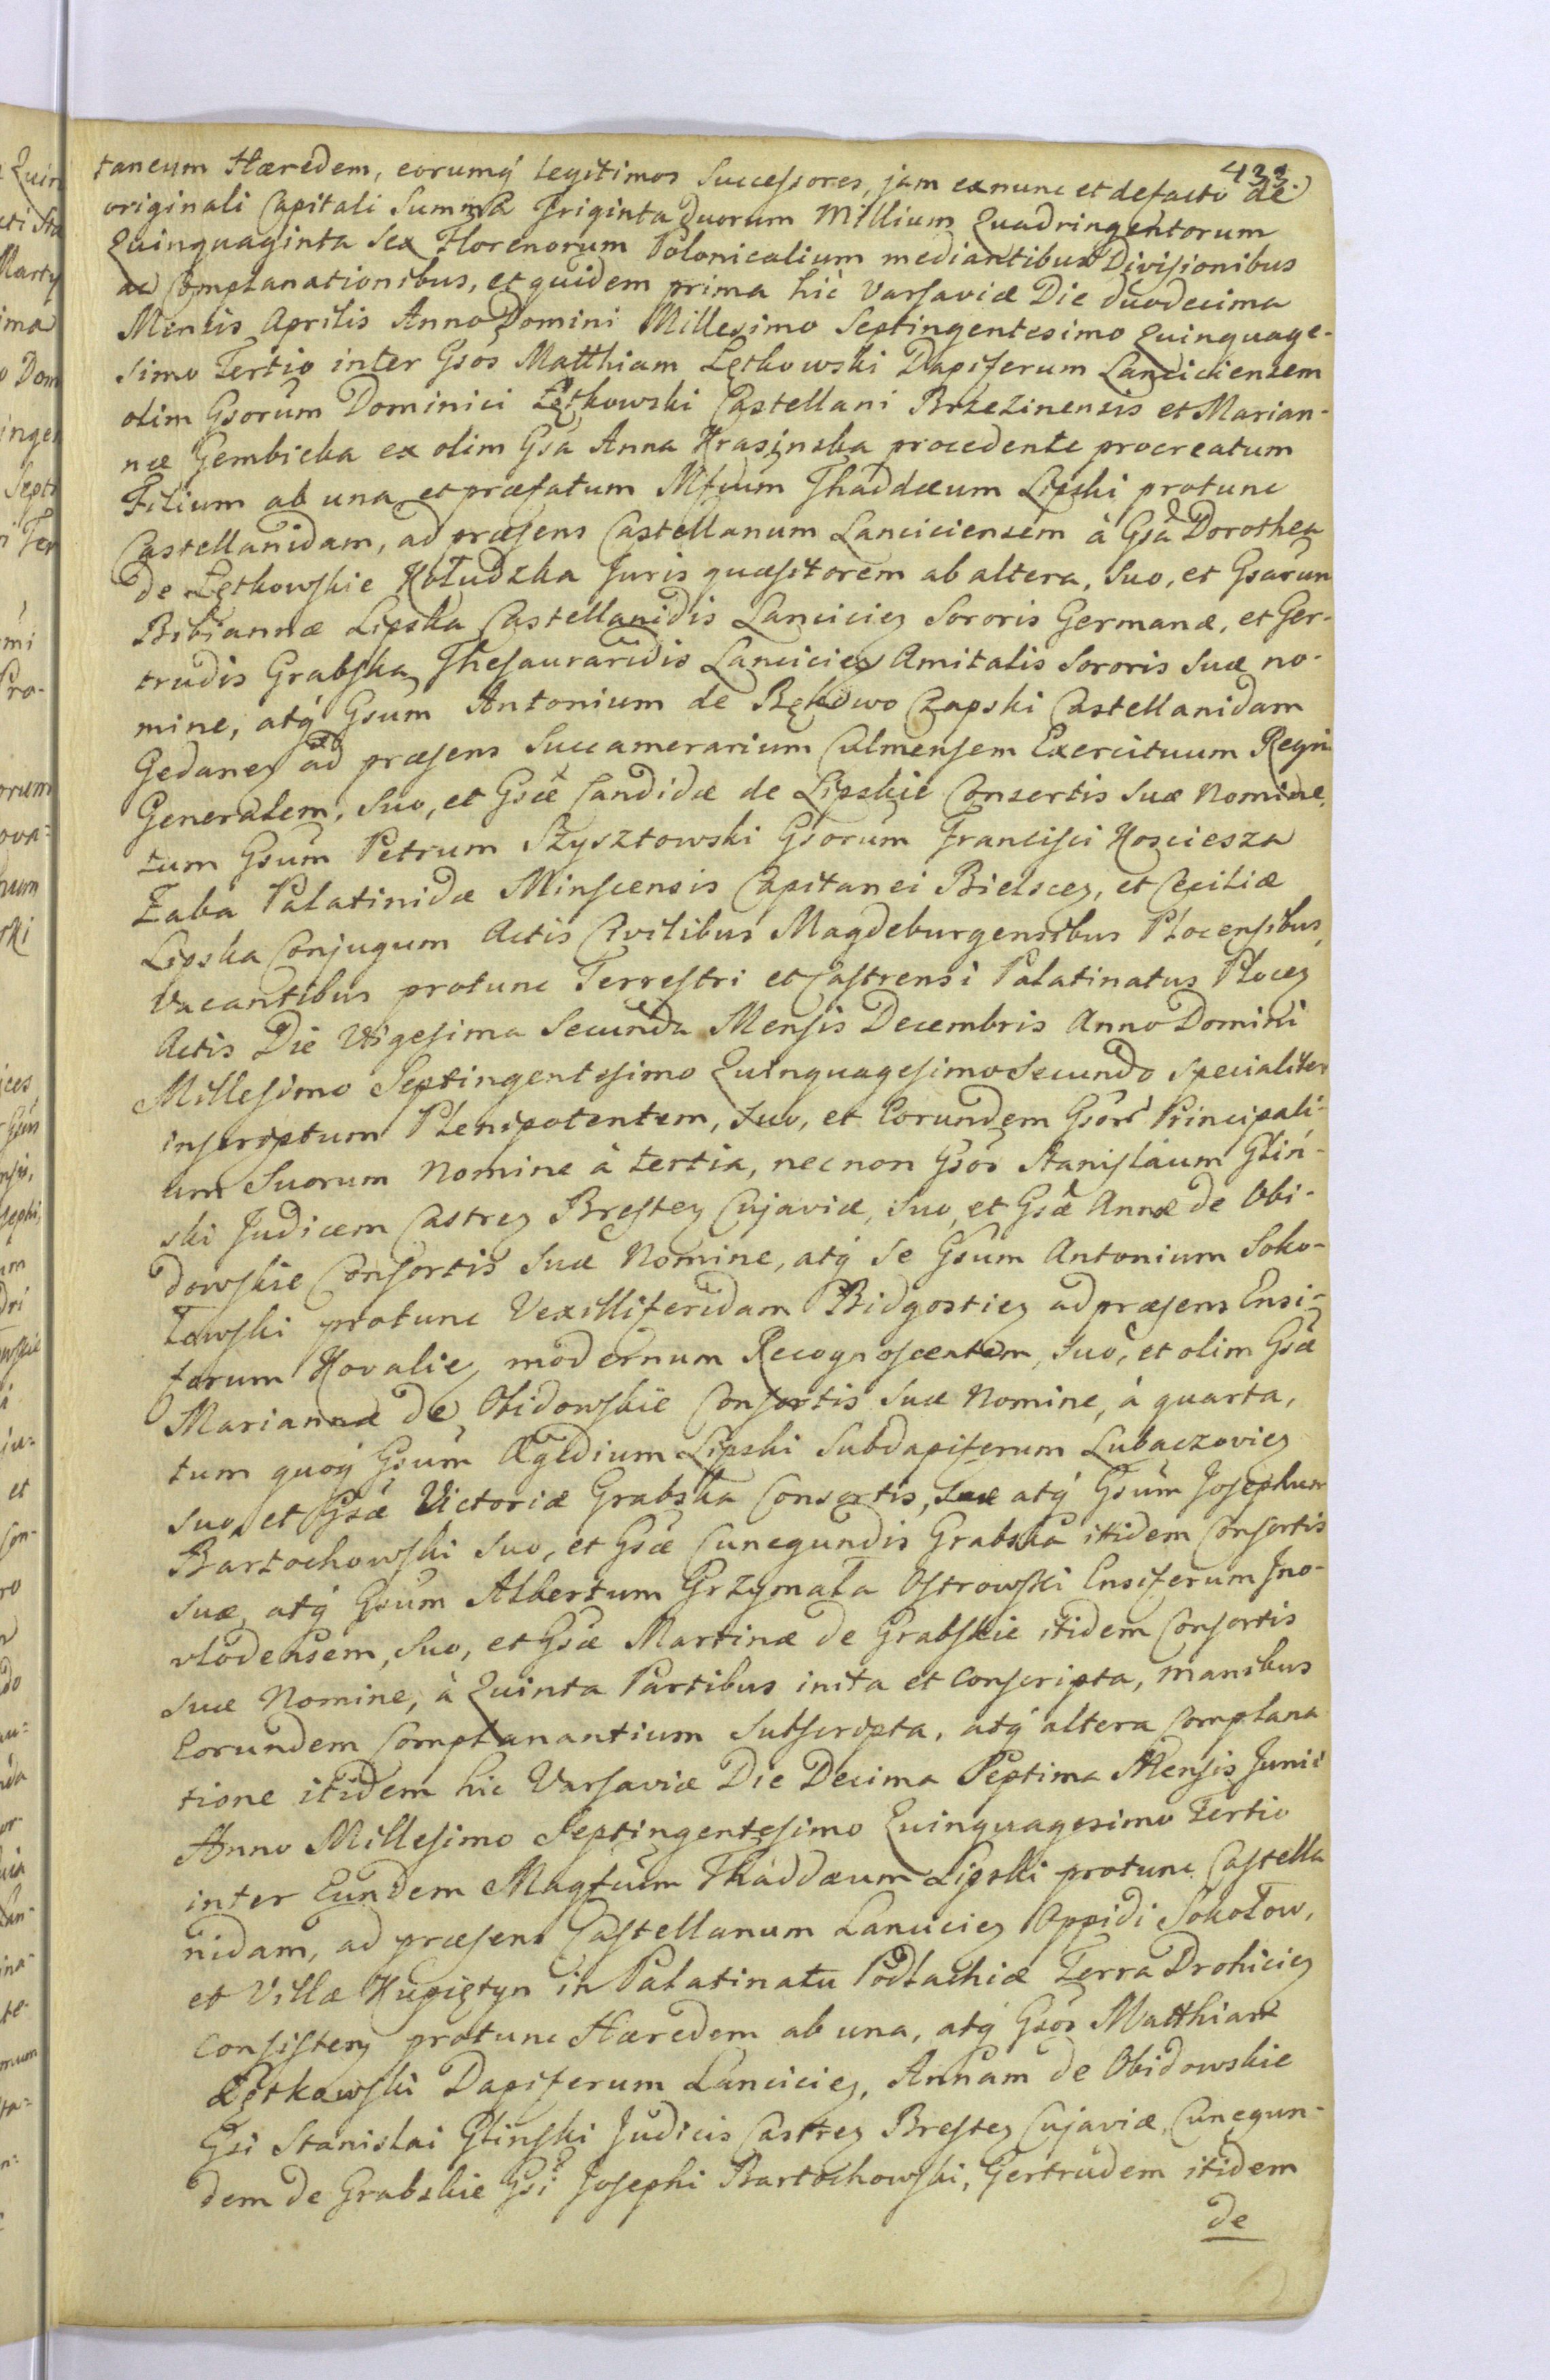 433.
taneum Hæredem, eorumq́ legitimos Successores, jam exnunc et defacto de
originali Capitali Summa Triginta duorum Millium Quadringentorum
Quinquaginta Sex Florenorum Polonicalium mediantibus Divisionibus
ac Complanationibus, et quidem prima hic Varsaviæ Die duodecima
Mensis Aprilis Anno Domini Millesimo Septingentesimo Quinquage-
simo Tertio inter Gsos Matthiam Łętkowski Dapiferum Lanciciensem
olim Gsorum Dominici Łętkowski Castellani Brzezinensis et Marian-
næ Gembicka ex olim Gsa Anna Krasinska procedente procreatum
Filium ab una et præfatum Mfcum Thaddæum Lipski protunc
Castellanidam, ad præsens Castellanum Lanciciensem à Gsa Dorothea
de Łętkowskie Kołudzka Juris quæsitorem ab altera, Suo, et Gsarum
Bibiannæ Lipska Castellanidis Lanciciey Sororis Germanæ, et Ger-
trudis Grabska Thesauraridis Lanciciey Amitalis Sororis Suæ no-
mine, atq́ Gsum Antonium de Bękowo Czapski Castellanidam
Gedaney ad præsens Succamerarium Culmensem Exercituum Regni
Generalem, Suo, et Gsæ Candidæ de Lipskie Consortis Suæ Nomine,
tum Gsum Petrum Szysztowski Gsorum Francisci Kosciesza
Żaba Palatinidæ Minscensis Capitanei Bielscey, et Ceciliæ
Lipska Conjugum Actis Civilibus Magdeburgensibus Plocensibus,
Vacantibus protunc Terrestri et Castrensi Palatinatus Plocey
Actis Die Vigesima Secunda Mensis Decembris Anno Domini
Millesimo Septingentesimo Quinquagesimo Secundo Specialiter
inscriptum Plenipotentem, Suo, et Eorundem Gsor Principali-
um Suorum Nomine à tertia, necnon Gsos Stanislaum Glin-
ski Judicem Castrey Brestey Cujaviæ, Suo, et Gsæ Annæ de Obi-
dowskie Consortis Suæ Nomine, atq́ Se Gsum Antonium Soko-
łowski protunc Vexilliferidam Bidgostiey ad præsens Ensi-
ferum Kovalie, modernum Recognoscentem, Suo, et olim Gsæ
Mariannæ de Obidowskie Consortis Suæ Nomine, à quarta,
tum quoq́ Gsum Ægidium Lipski Subdapiferum Lubaczoviey
Suo, et Gsæ Victoriæ Grabska Consortis, Suæ atq́ Gsum Josephum
Bartochowski Suo, et Gsæ Cunegundis Grabska itidem Consortis
Suæ, atq́ Gsum Albertum Grzymała Ostrowski Ensiferum Jno-
vlodensem, Suo, et Gsæ Martinæ de Grabskie itidem Consortis
Suæ Nomine, à Quinta Partibus inita et conscripta, manibus
Eorundem Complanantium Subscripta, atq́ altera Complana
tione itidem hic Varsaviæ Die Decima Septima Mensis Junii
Anno Millesimo Septingentesimo Quinquagesimo Tertio
inter Eundem Magfcum Thaddæum Lipski protunc Castella
nidam, ad præsens Castellanum Lanciciey Oppidi Sokołow,
et Villæ Kupiętyn in Palatinatu Podlachiæ Terra Drohiciey
Consistey protunc Hæredem ab una, atq́ Gsos Matthiam
Łętkowski Dapiferum Lanciciey, Annam de Obidowskie
Gsi Stanislai Glinski Judicis Castrey Brestey Cujaviæ, Cunegun-
dem de Grabskie Gsi Josephi Bartochowski, Gertrudem itidem
de